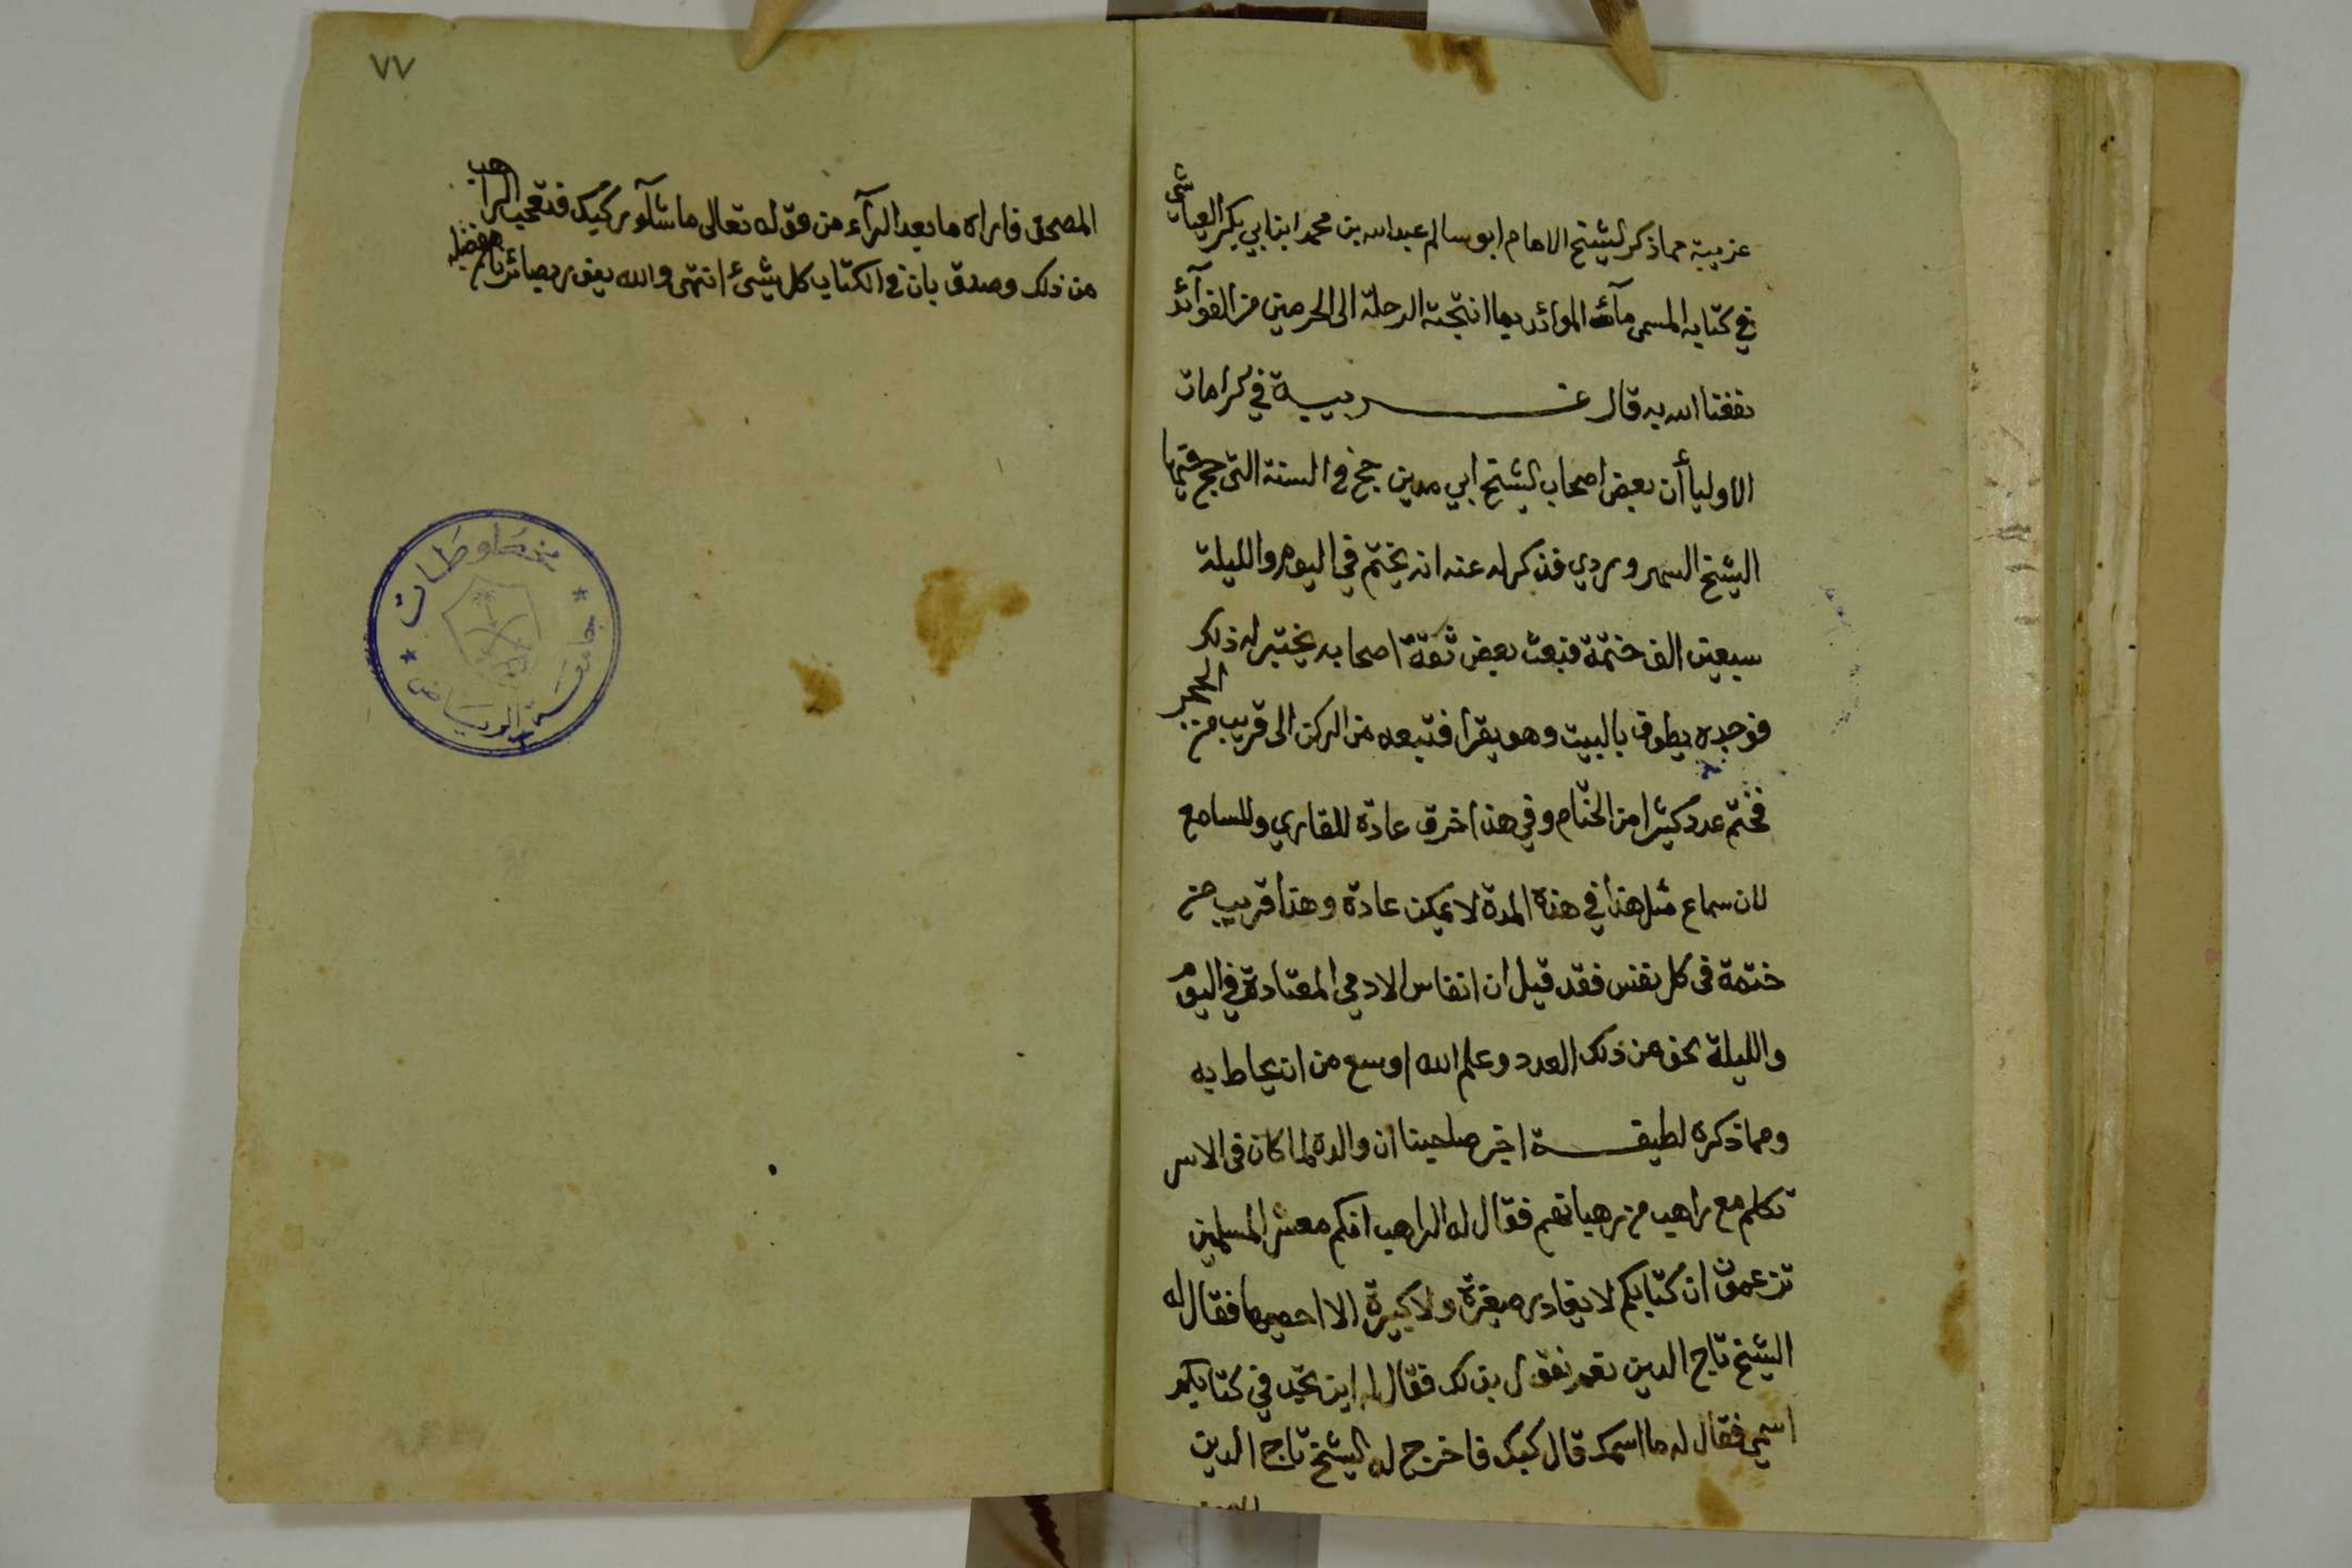 غريبة مما ذكر الشيخ الامام ابو سالم عبد الله بن محمد ابن ابي بكر العياشي
في كتابه المسمى مآئد الموائد بما انتجته الرحلة الى الحرمين من الفوآئد
نفعنا الله به قال غريبة في كرامات
الاوليا أن بعض اصحاب الشيخ ابي مدين حج في السنة التى حج فيها
الشيخ السهروردي فذكر له عنه انه يختم في اليوم والليلة
سبعين الف ختمة فبعث بعض ثقة اصحابه يختبر له ذلك
فوجده يطوف بالبيت وهو يقرا فتبعه من الركن الى قريب من الحجر
فختم عدد كثيرا من الختام وفي هذا خرق عادة للقاري وللسامع
لان سماع مثل هذا في هذه المدة لا يمكن عادة وهذا قريب من
ختمة فى كل نفس فقد قيل ان انفاس الادمي المعتادة في اليوم
والليلة نحو من ذلك العدد وعلم الله اوسع من ان يحاط به
ومما ذكره لطيفة اخبر صاحبنا ان والده لما كان فى الاسر
تكلم مع راهب من رهبانهم فقال له الراهب انكم معشر المسلمين
تزعمون ان كتابكم لا يغادر صغيرة ولا كبيرة الا احصيها فقال له
الشيخ تاج الدين نعم نقول بذلك فقال له اين تجد في كتابكم
اسمي فقال له ما اسمك قال كبك فاخرج له الشيخ تاج الدين
٧٧
المصحف فاراه ما بعد الرآء من قوله تعالى ما شآء ركبك فتعجب الراهب
من ذلك وصدق بان في الكتاب كل شيئ انتهى والله ينور بصائرنا بفضله
مخطوطات
جامعة الرياض